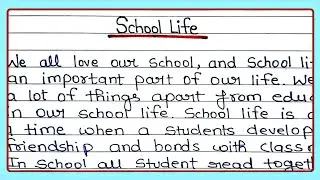 School Life
We all love our School, and School li
an important part of our life. We
a lot of things apart from educ
in our school life. School life is a
a time when a students develop
friendship and bonds with classm
In School all student read togeth